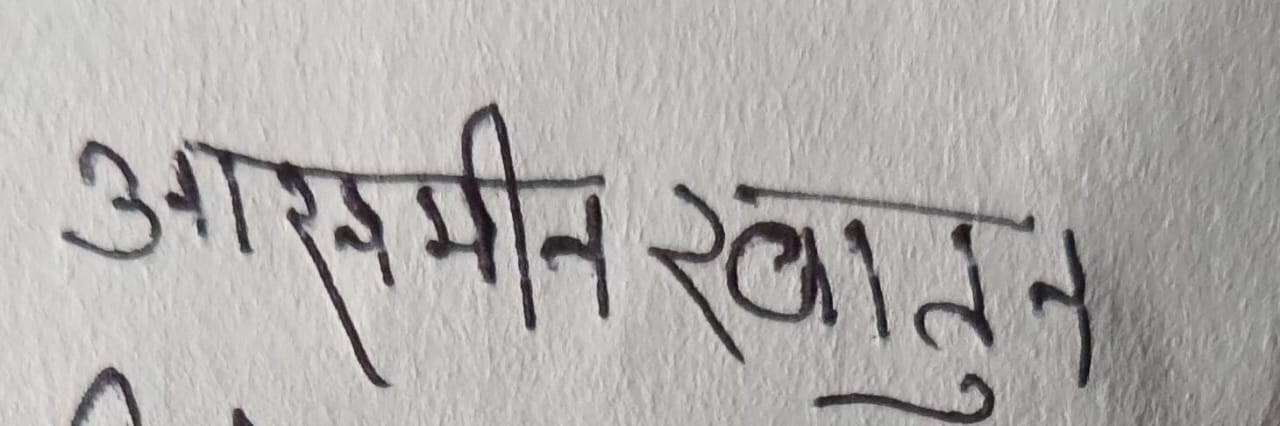 आसमीन खातुन